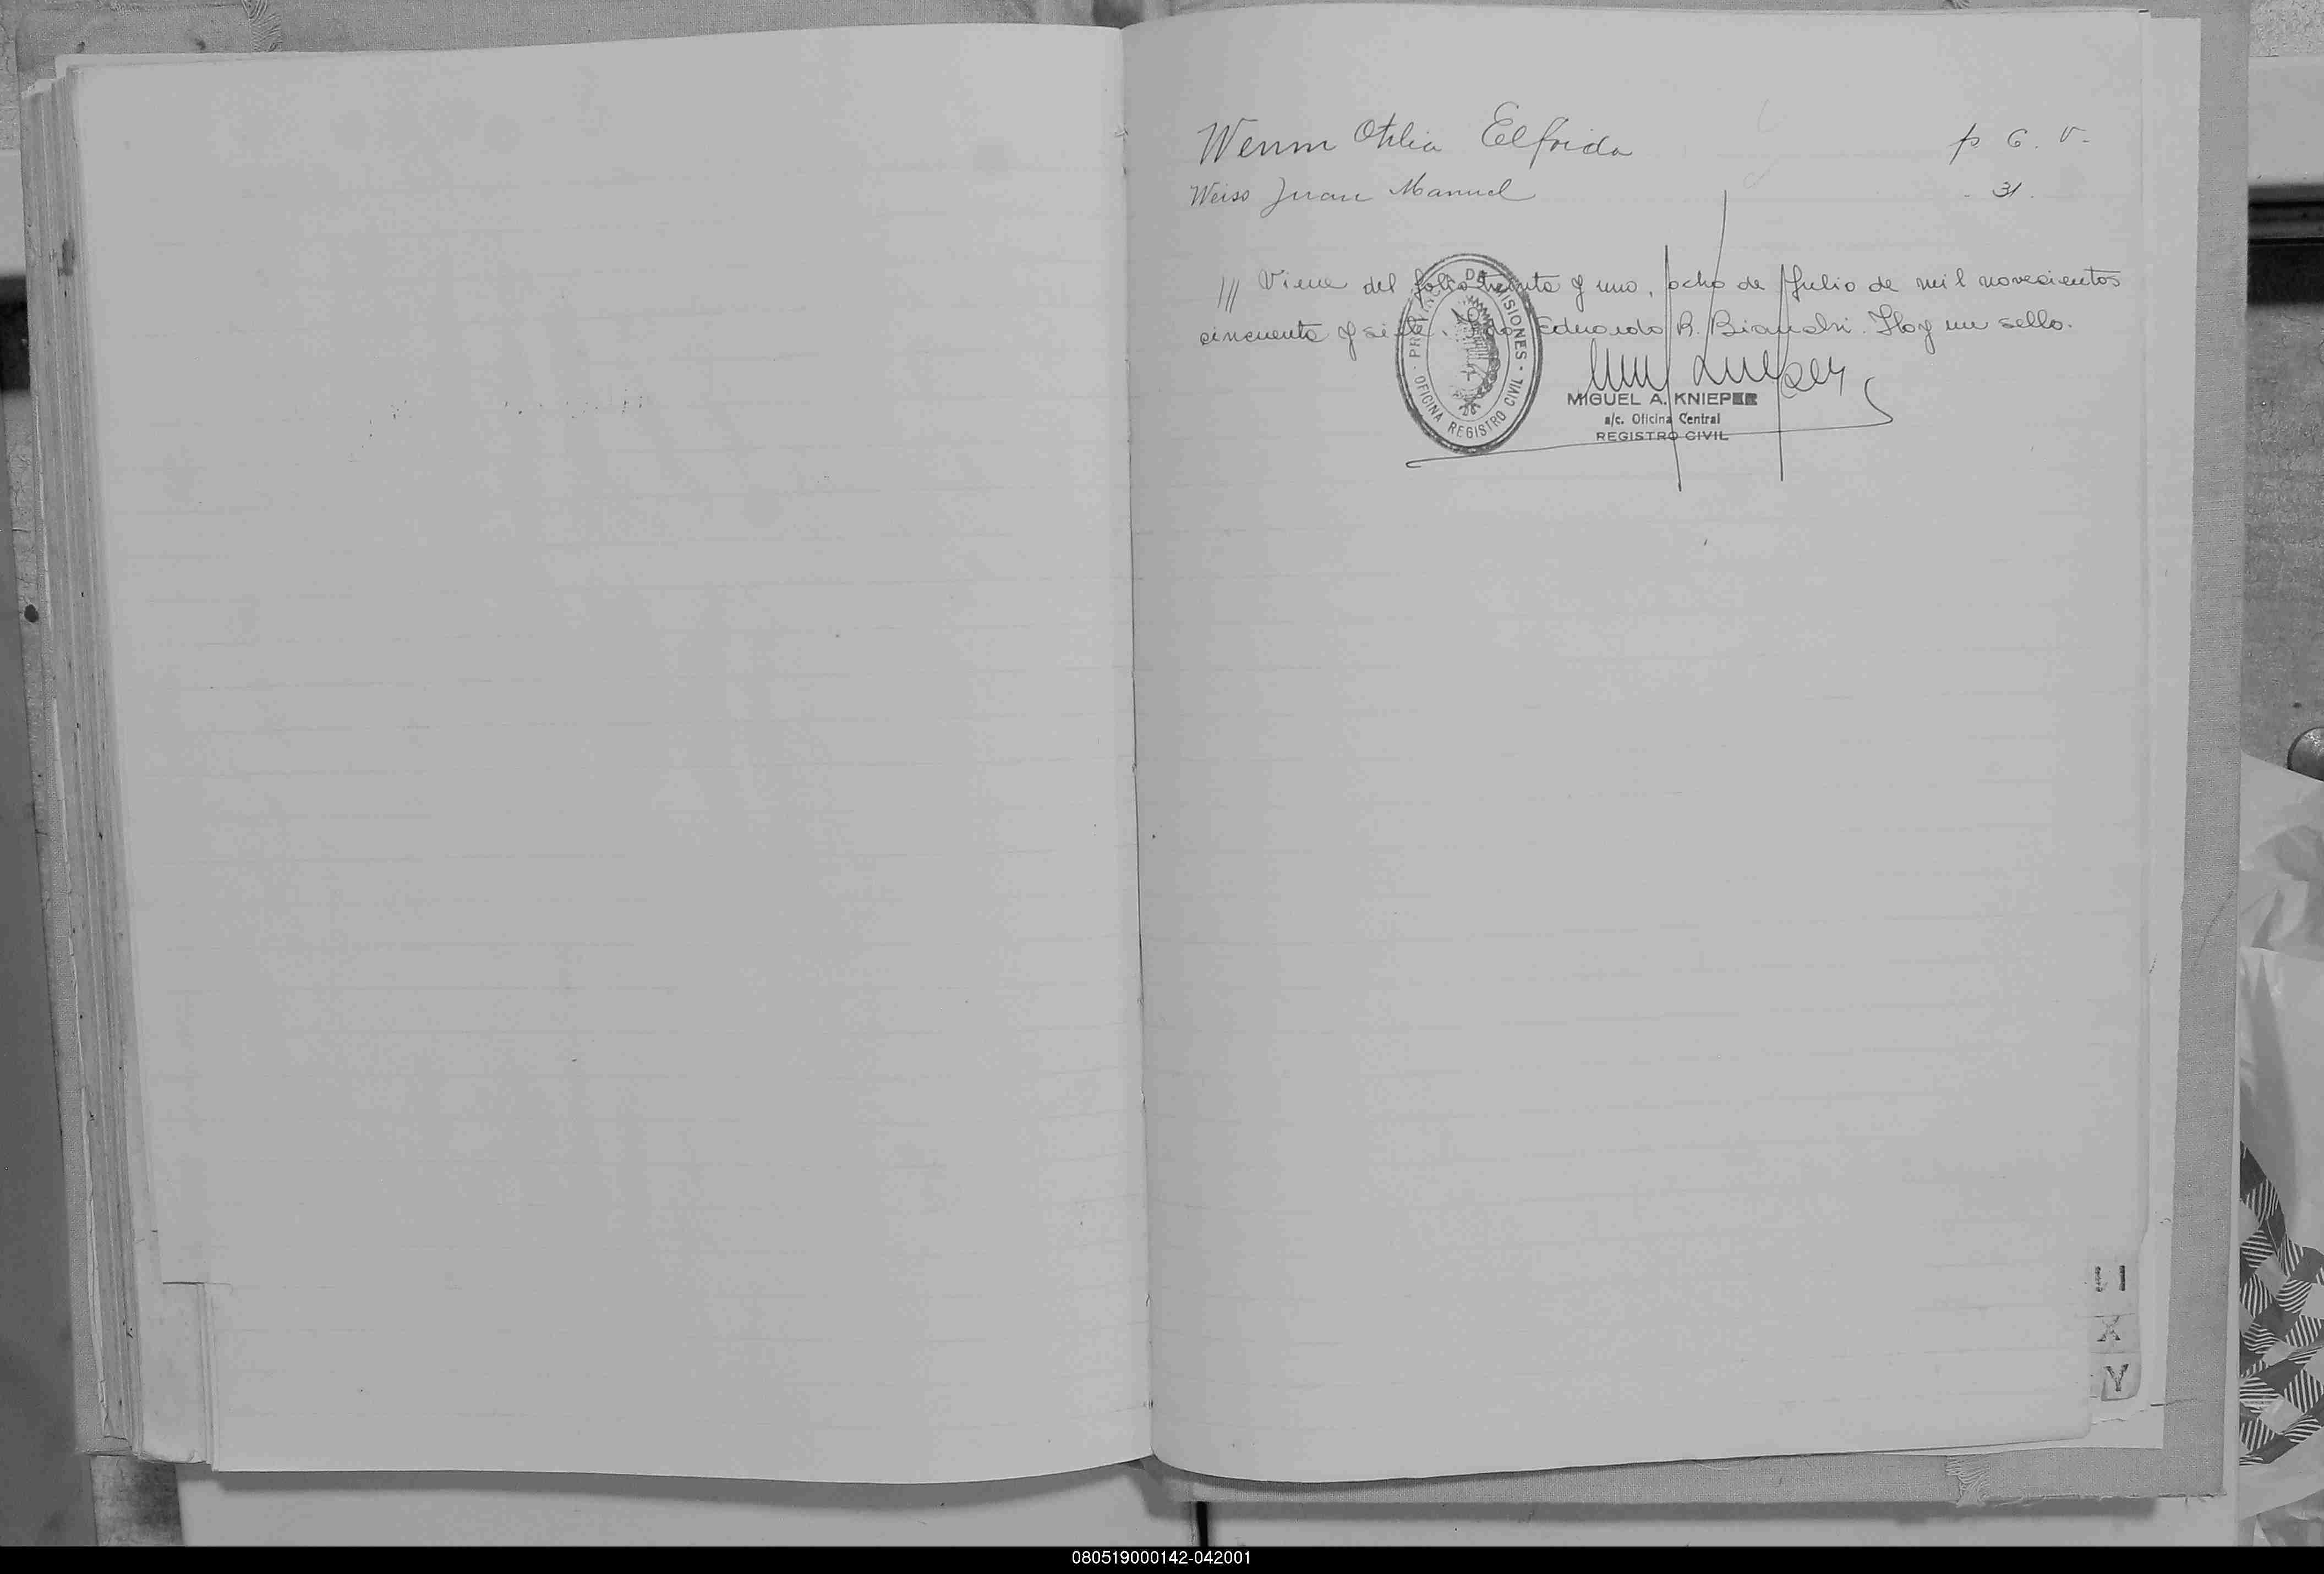 Wenm Otilia Elfrida p 6. v.
Weiss Juan Manuel - 31.
/// Viene del folio treinta y uno, ocho de Julio de mil novecientos
cincuenta y siete. Eduardo R. Bianchi. Hay un sello.
PROVINCIA DE MISIONES
OFICINA REGISTRO CIVIL
MIGUEL A. KNIEPER
a/c. Oficina Central
REGISTRO CIVIL
X
Y
080519000142-042001